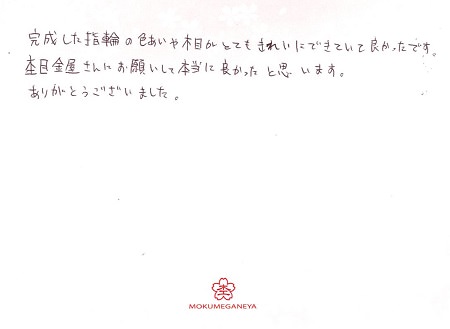 完成した指輪の色あいや木目がとてもきれいにできていて良かったです。
杢目金屋さんにお願いして本当に良かったと思います。
ありがとうございました。
MOKUMEGANEYA